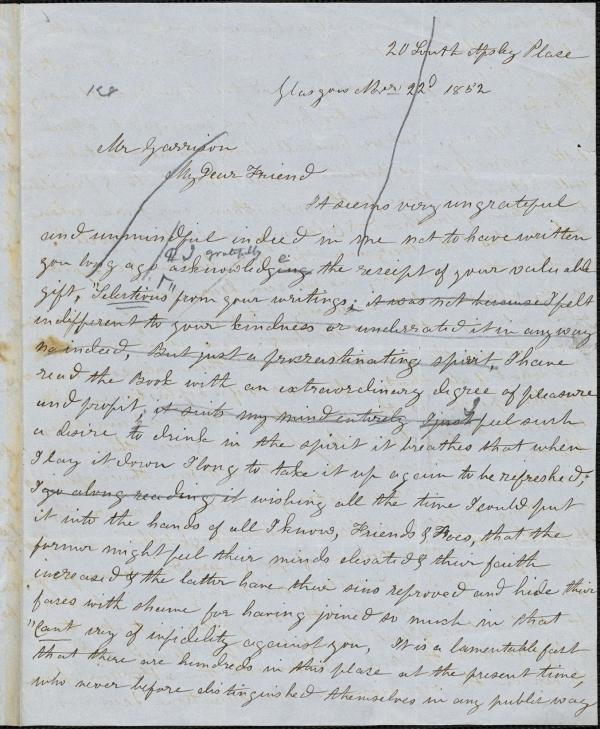 20 South Apsley Place
Glasgow Novr 22d 1852
Mr Garrison
My Dear Friend
It seems very ungrateful
and unmindful indeed in me not to have written
gratefully e
you long ago acknowledging the receipt of your valuable
gift, "Selections" from your writings; it was not because I felt
indifferent to your kindness or underrated it in any way
no indeed, But just a procrastinating spirit, I have
read the Book with an extraordinary degree of pleasure
and profit, it suits my mind entirely I just feel such
a desire to drink in the spirit it breathes that when
I lay it down I long to take it up again to be refreshed;
I go along reading it wishing all the time I could put
it into the hands of all I know, Friends & Foes, that the
former might feel their minds elevated & their faith
increased & the latter have their sins reproved and hide their
faces with shame for having joined so much in that
"Cant cry of infidelity against you, It is a lamentable fact
that there are hundreds in this place at the present time,
who never before distinguished themselves in any public way